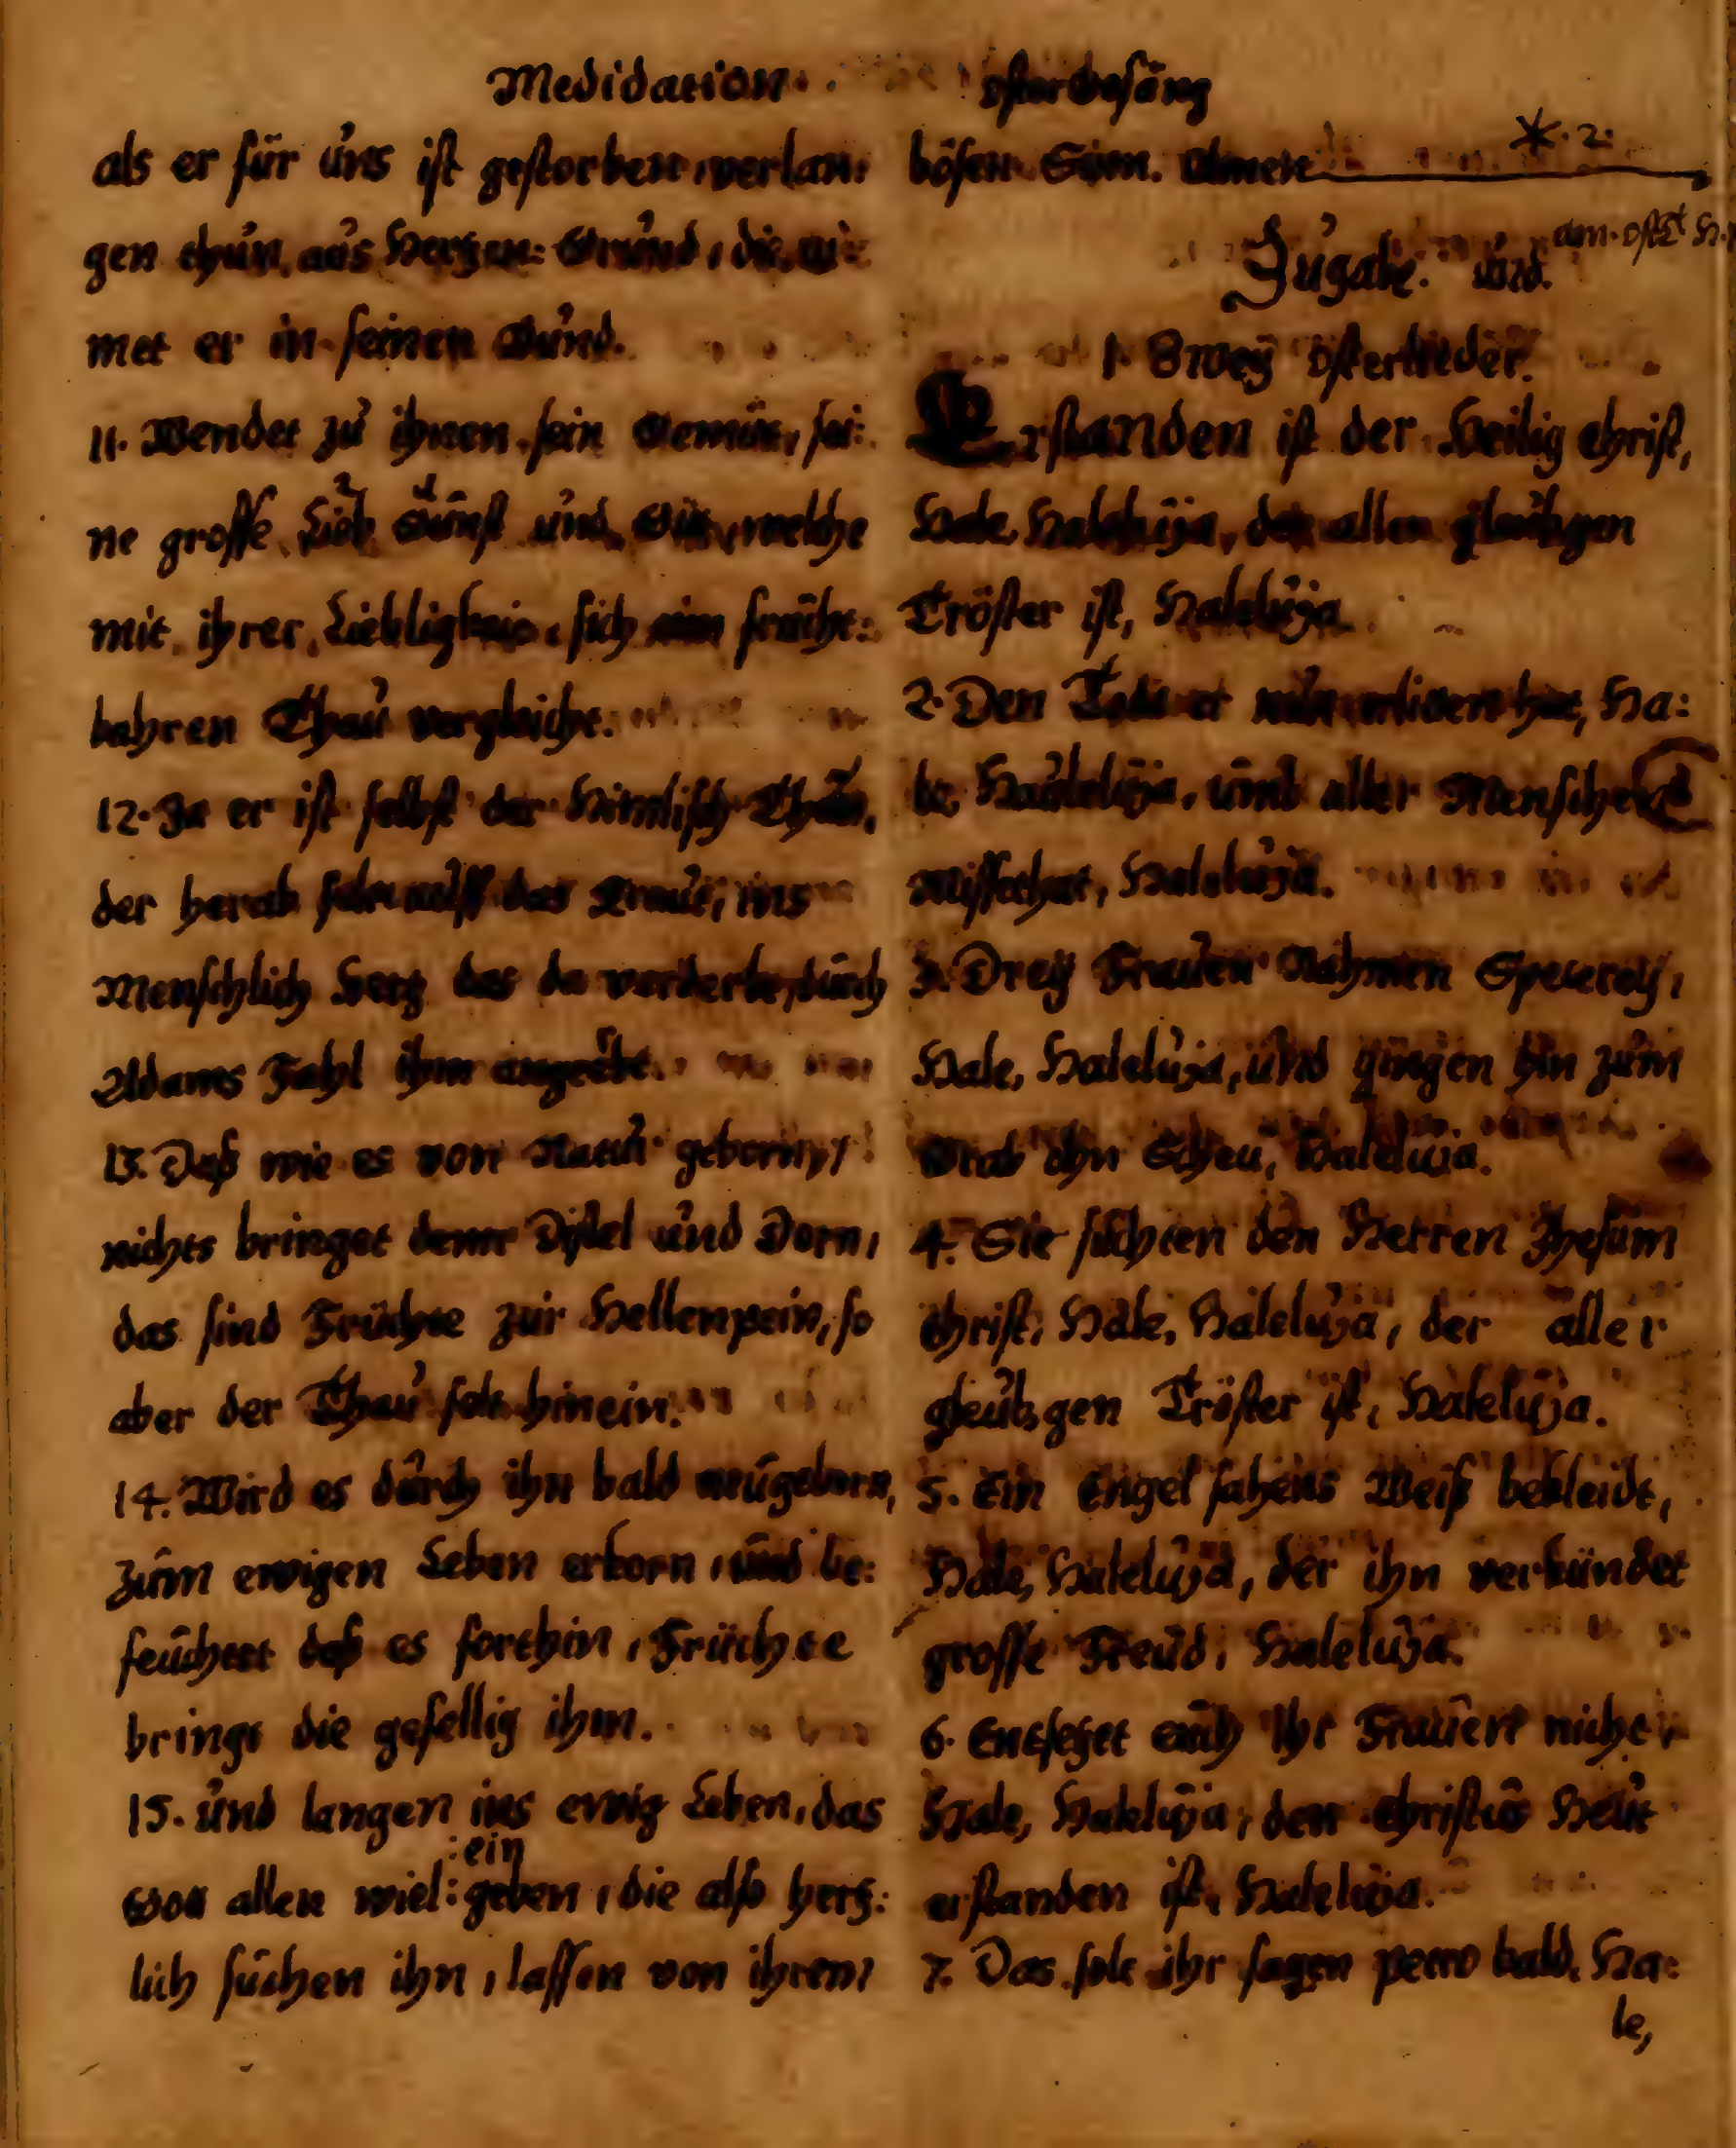 Medidation.
als er für uns ist gestorben, verlan:
gen thun, aus Hertzen: Grund, die ni:
met er in seinen Bund.
11. Wendet zu ihnen sein Gemüt, sei:
ne grosse Lieb Gunst und Güt, welche
mit ihrer Liebligkeit, sich eim frücht:
bahren Thau vergleicht.
12. Ja er ist selbst der Himlisch Thau,
der herab felt auff das Kraut, ins
Menschlich Hertz das da verderbt, durch
Adams Fahl ihm angeerbt.
13. Daß wie es von Natur geborn,
nichts bringet denn Distel und Dorn,
das sind Früchte zur Hellenpein, so
aber der Thau felt hinein.
14. Wird es durch ihn bald neugeborn,
zum ewigen Leben erkorn, und be:
feuchtet daß es forthin, Früchte
bringt die gefellig ihm.
15. und langen ins ewig Leben, das
:ein
Gott allen wiel: geben, die also hertz:
lich suchen ihn, lassen von ihrem
OsterGesäng
bösen Sinn. Amen
*. 2.
am. Ost H.
Zugabe. und.
1. Zwey Osterlieder.
Erstanden ist der Heilig Christ,
Hale, Haleluja, der allen gläubgen
Tröster ist, Haleluja.
2. Den Tode er nun erlitten hat, Ha:
le, Haleluja, umb aller Menschen
Missethat, Haleluja.
3. Drey Frauen Nahmen Specerey,
Hale, Haleluja, und gingen hin zum
Grab ohn Scheu, Haleluja.
4. Sie suchten den Herren Jhesum
Christ, Hale, Haleluja, der aller
gleubgen Tröster ist, Haleluja.
5. Ein Engel sahens Weiß bekleidt,
Hale, Haleluja, der ihn verkündet
grosse Freud, Haleluja.
6. Entsetzet euch Ihr Frauen nicht
Hale, Haleluja, den Christus Heut
erstanden ist, Haleluja.
7. Das solt ihr sagen petro bald, Ha:
le,